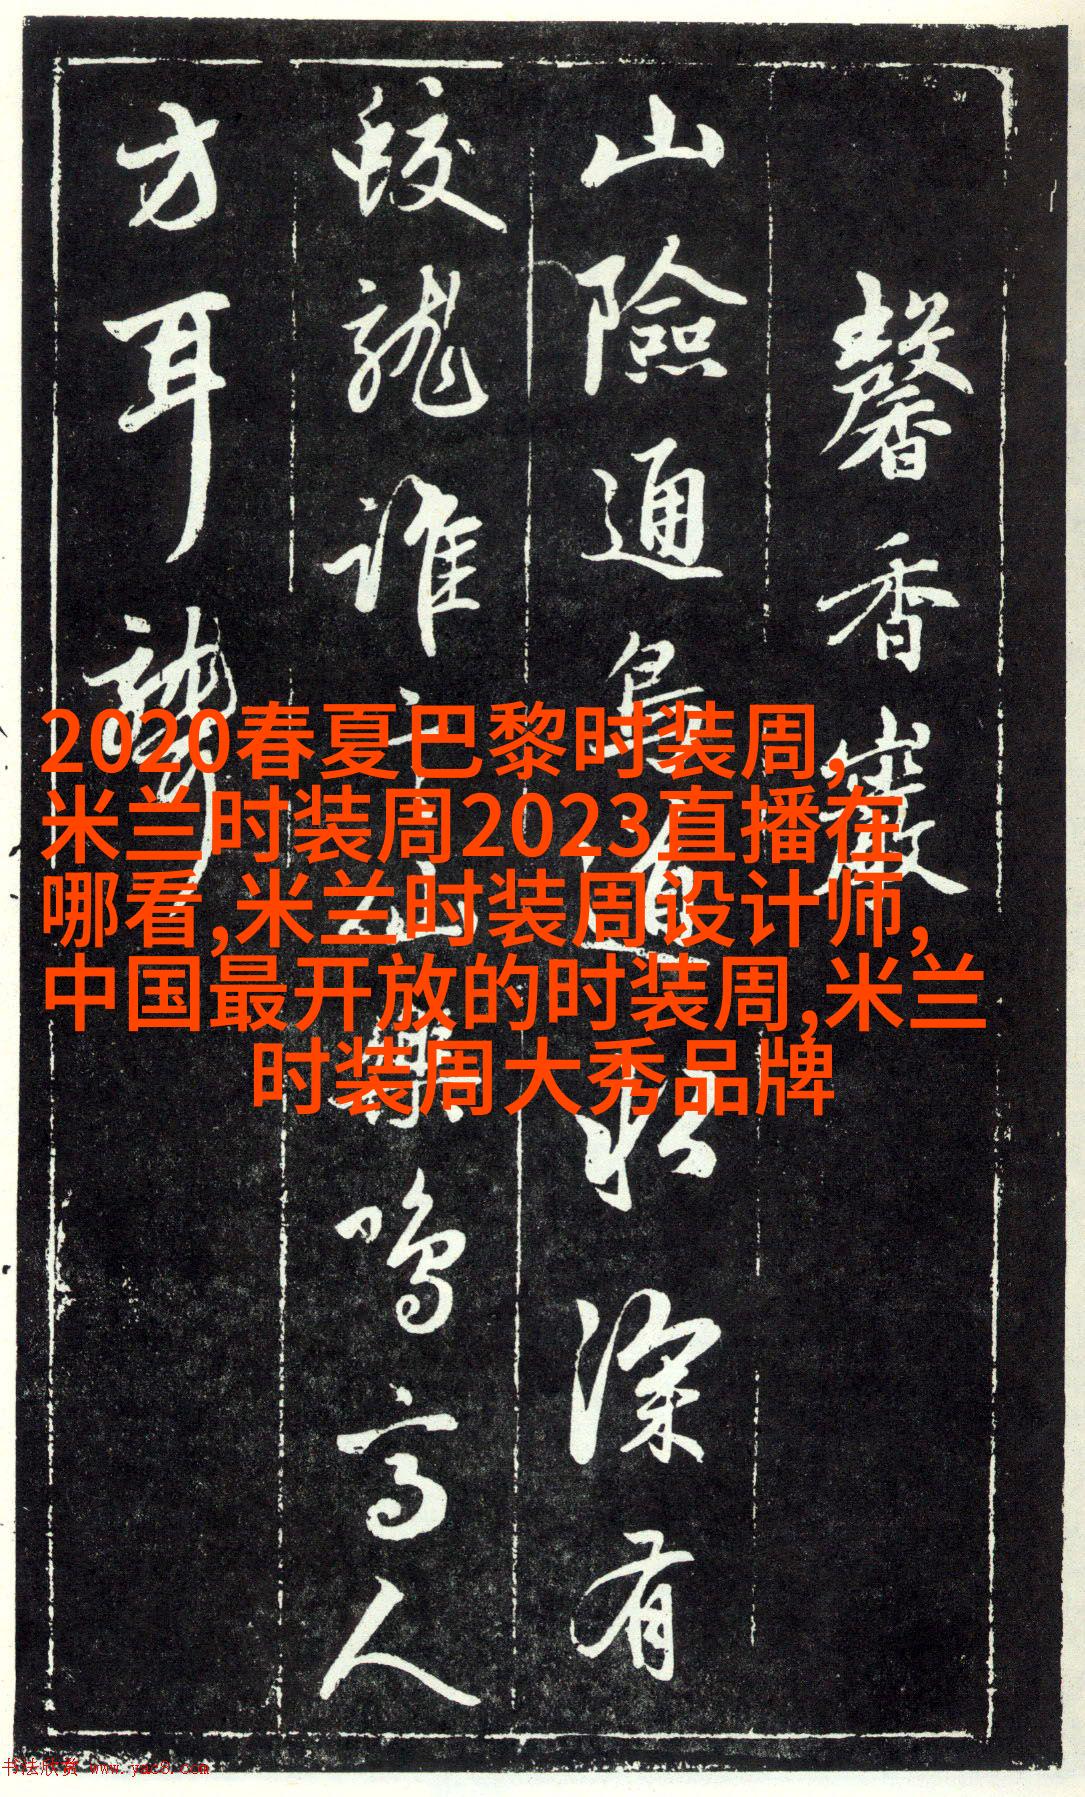 馨香巖
山險通鳥道深有
蛟龍誰鳴高人
方耳聾
2020春夏巴黎时装周,
米兰时装周2023直播在
哪看,米兰时装周设计师,
中国最开放的时装周,米兰
时装周大秀品牌
书法欣赏 www.yac8.com